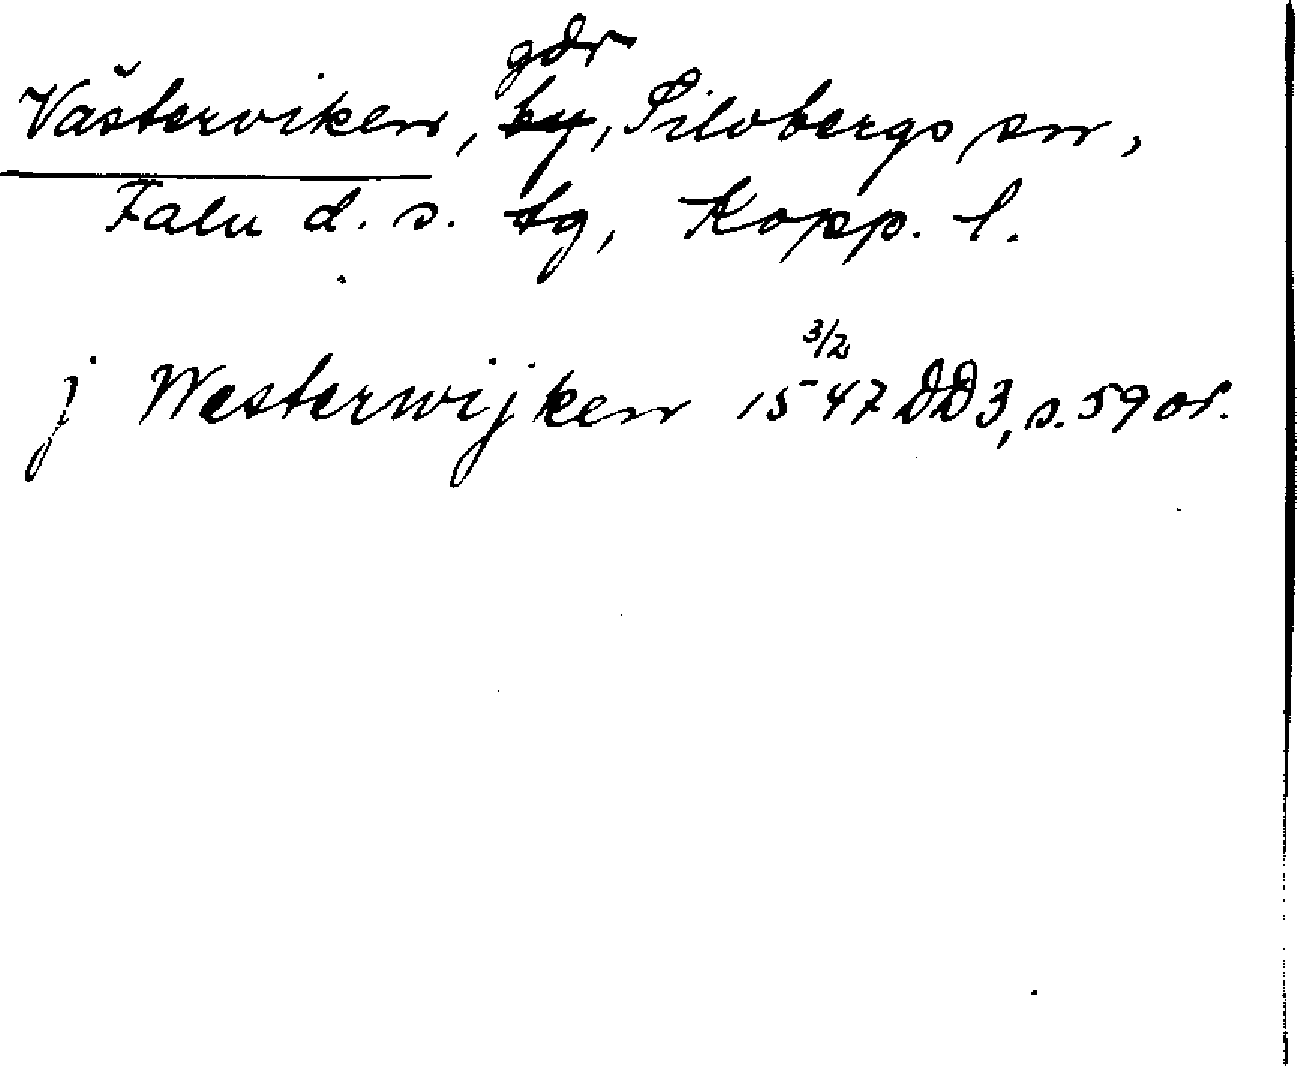 gdr
Västerviken, by, Silvbergs sn,
Falu d. s. tg, Kopp. l.
3/2
j Westerwijken 1547 DD3, s. 59 or.